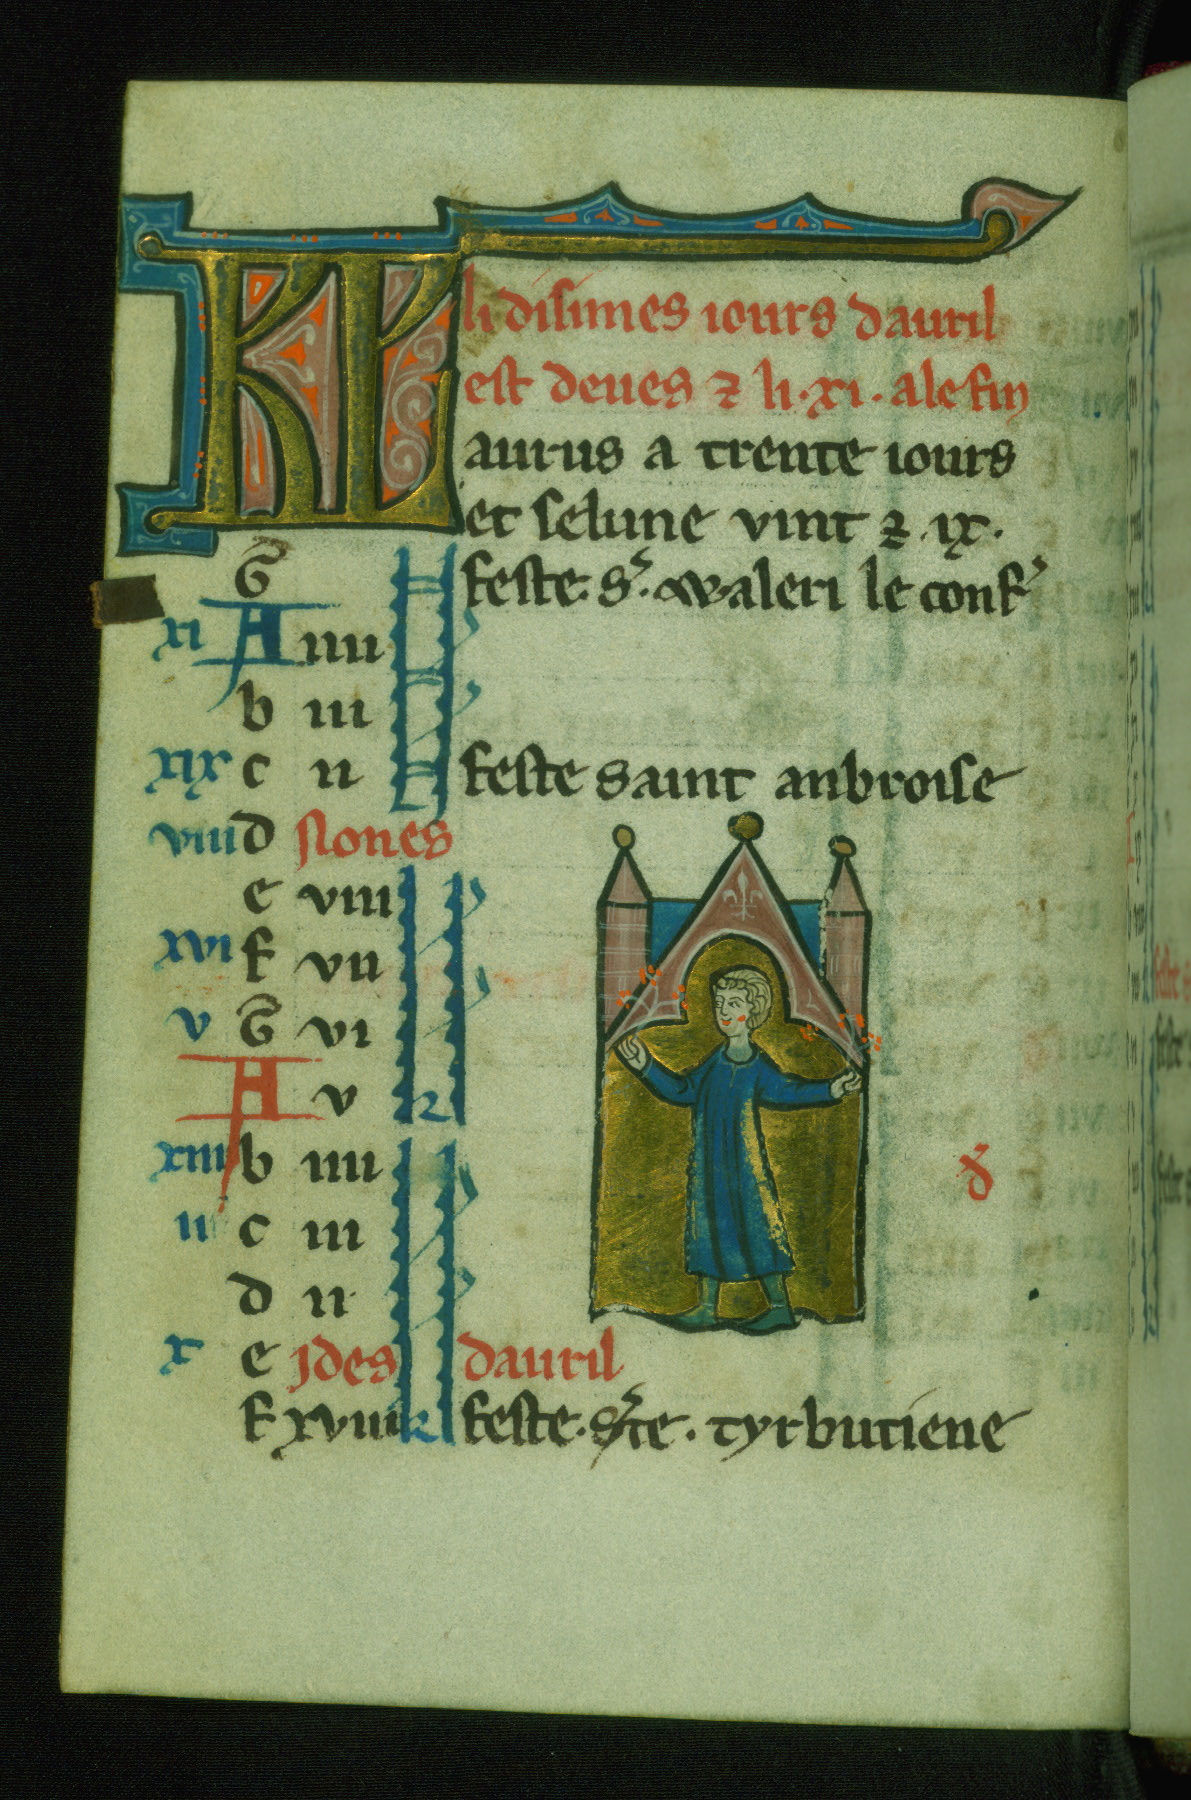 KL li disimes iours dauril
est deues ⁊ li .xi. ale fin
aurus a trente iours
et selune vint ⁊ .ix.
G feste. s. Waleri le conf
xi A iiii
b iii
xix c ii feste saint anbroise
viii d Nones
e viii
xvi f vii
v G vi
A v k
xiii b iiii
ii c iii
d ii
x e Ides dauril
f xviii k feste. ste. tyrbutiene